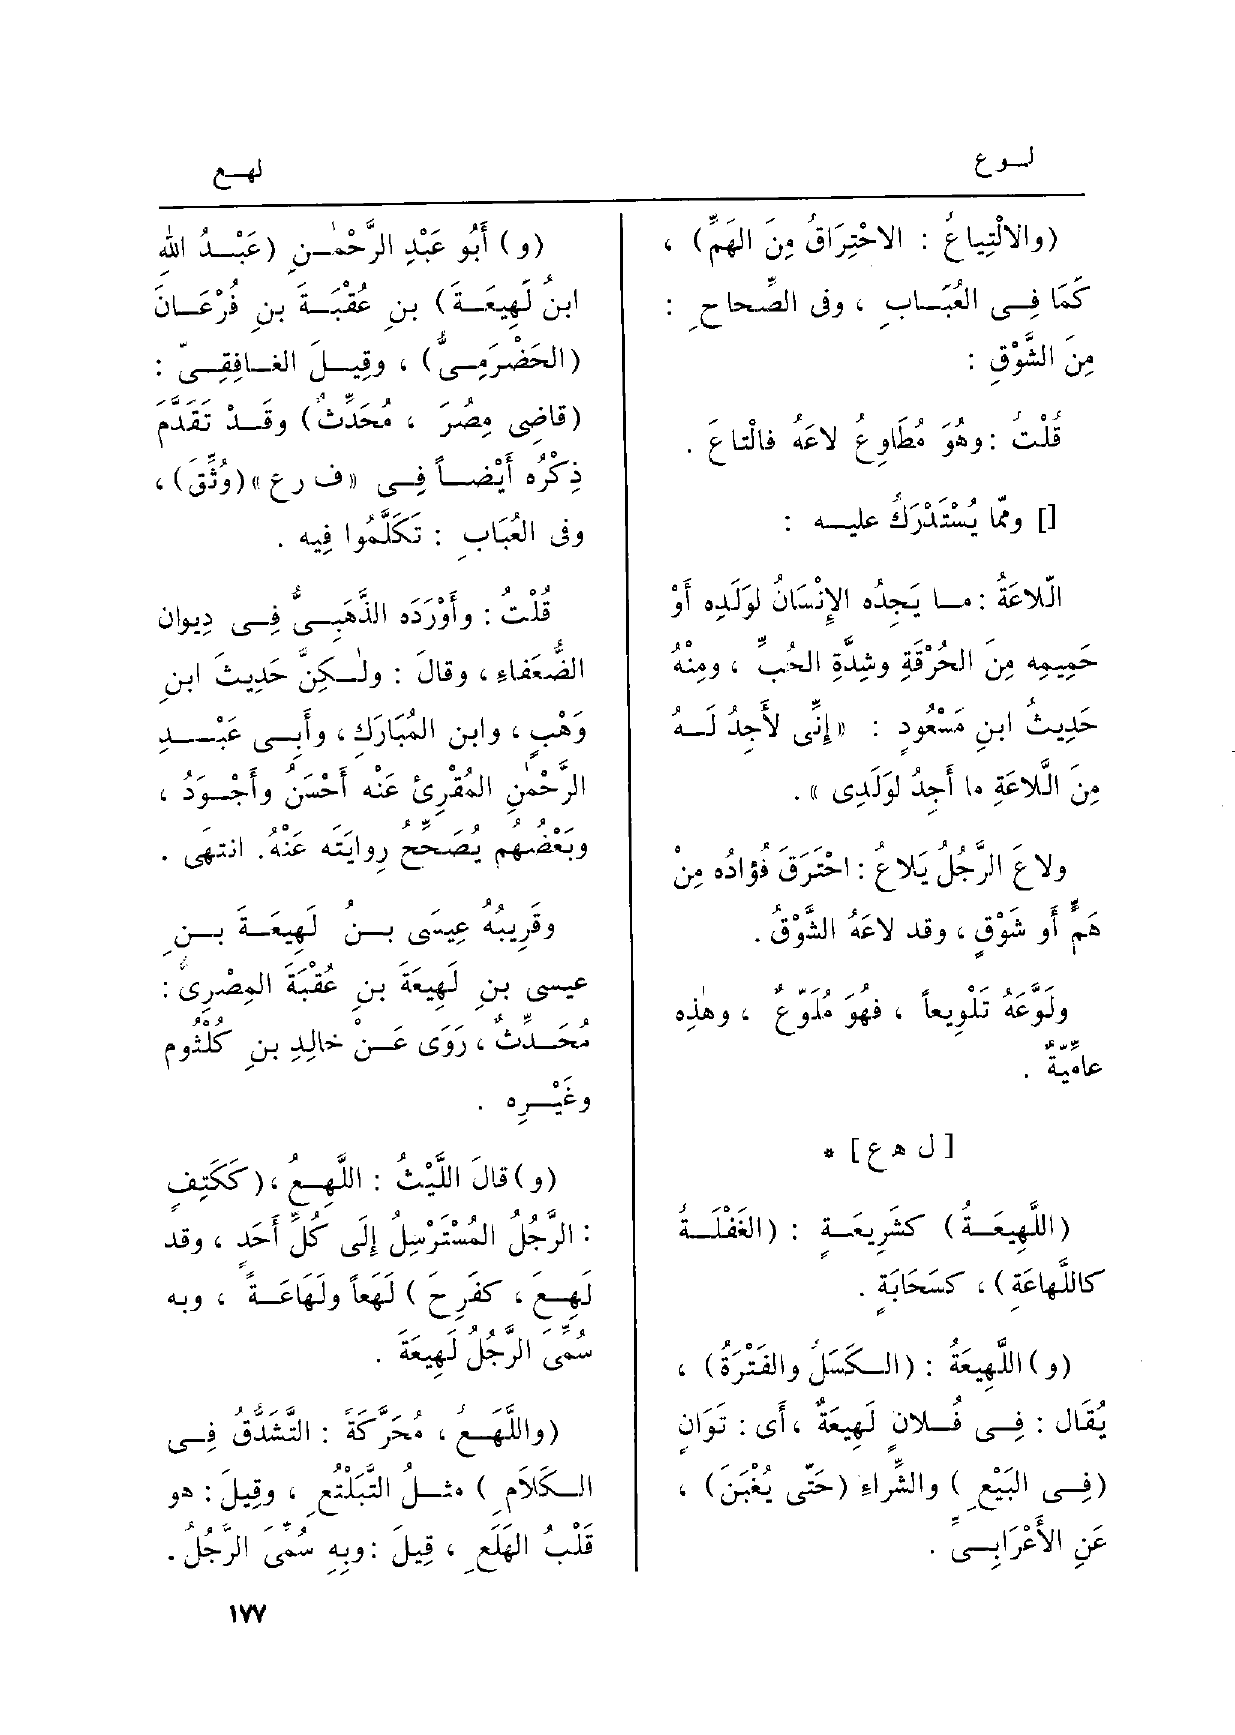 لـوع
لهـع
(والالْتِياعُ : الاحْتِرَاقُ مِنَ الهَمِّ) ،
كَمَا فِـى العُبَـابِ ، وفى الصِّحاحِ :
مِنَ الشَّوْقِ :
قُلْتُ : وهُوَ مُطَاوِعُ لاعَهُ فالْتاعَ .
[] وممّا يُسْتَدْرَكُ عليـه :
الَّلاعَةُ : مـا يَجِدُه الإِنْسَانُ لوَلَدِه أَوْ
حَمِيمِه مِنَ الحُرْقَةِ وشِدَّةِ الحُبِّ ، ومِنْهُ
حَدِيثُ ابنِ مَسْعُودٍ : «إِنِّى لأَجِدُ لَـهُ
مِنَ الَّلاعَةِ ما أَجِدُ لوَلَدِى» .
ولاعَ الرَّجُلُ يَلاعُ : احْتَرَقَ فُؤادُه مِنْ
هَمٍّ أَو شَوْقٍ ، وقد لاعَهُ الشَّوْقُ .
ولَوَّعَهُ تَلْوِيعاً ، فهُوَ مُلَوَّعٌ ، وهٰذِه
عامِّيّةٌ .
[ ل ه ع ] *
(اللَّهِيعَـةُ) كشَرِيعَـةٍ : (الغَفْلَـةُ
كاللَّهاعَةِ) ، كسَحَابَةٍ .
(و) اللَّهِيعَةُ : (الـكَسَلُ والفَتْرَةُ) ،
يُقَال : فِـى فُـلانٍ لَهِيعَةٌ ، أَى : تَوَانٍ
(فِـى البَيْعِ ) والشِّراءِ (حَتّى يُغْبَنَ) ،
عَنِ الأَعْرَابِـىِّ .
(و) أَبُو عَبْدِ الرَّحْمٰـنِ (عَبْـدُ اللهِ
ابنُ لَهِيعَـةَ) بنِ عُقْبَـةَ بنِ فُرْعَـانَ
(الحَضْرَمِـىُّ) ، وقِيـلَ الغـافِقِـىّ :
(قاضِى مِصْرَ ، مُحَدِّثٌ) وقَـدْ تَقَدَّمَ
ذِكْرُه أَيْضـاً فِـى «ف رع» (وُثِّقَ) ،
وفى العُبَابِ : تَكَلَّمُوا فِيه .
قُلْتُ : وأَوْرَدَه الذَّهَبِـىُّ فِـى دِيوان
الضُّعَفاءِ ، وقالَ : ولٰـكِنَّ حَدِيثَ ابنِ
وَهْبٍ ، وابن المُبَارَكِ ، وأَبِـى عَبْـدِ
الرَّحْمٰنِ المُقْرِئِ عَنْه أَحْسَنُ وأَجْـوَدُ ،
وبَعْضُهم يُصَحِّحُ رِوايَتَه عَنْهُ. انتهى .
وقَرِيبُهُ عِيسَى بـنُ لَهِيعَـةَ بـنِ
عيسى بنِ لَهِيعَةَ بنِ عُقْبَةَ المِصْرِىّ :
مُحَـدِّثٌ ، رَوَى عَـنْ خالِدِ بنِ كُلْثُومٍ
وغَيْـرِه .
(و) قالَ اللَّيْثُ : اللَّهِـعُ ، (كَكَتِفٍ
: الرَّجُلُ المُسْتَرْسِلُ إِلَى كُلِّ أَحَدٍ ، وقد
لَهِـعَ ، كفَرِحَ ) لَهَعاً ولَهَاعَـةً ، وبه
سُمِّىَ الرَّجُلُ لَهِيعَةَ .
(واللَّهَـعُ ، مُحَرَّكَةً : التَّشَدُّقُ فِـى
الـكَلاَمِ ) مثـلُ التَّبَلْتُعِ ، وقِيلَ : هو
قَلْبُ الهَلَعِ ، قِيلَ : وبِهِ سُمِّىَ الرَّجُلُ.
١٧٧